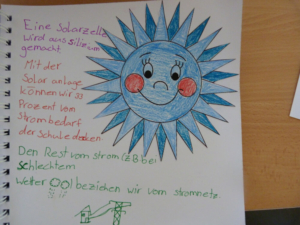 Eine Solarzelle
wird aus silizium
gemacht
Mit der
Solar anlage
können wir
Prozent vom
Strombedarf
der Schule decken.
Den Rest vom strom (z.B bei
schlechtem
Wetter) beziehen wir vom stromnetz.